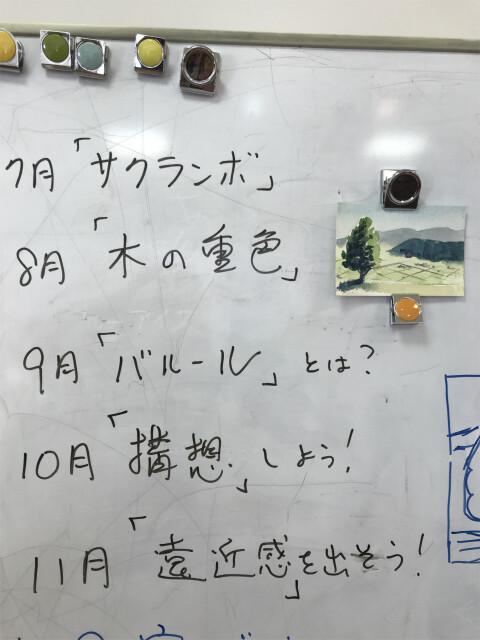 7月「サクランボ」
8月「木の重色」
9月「バルール」とは?
10月「構想」しよう!
11月「遠近感」を出そう!